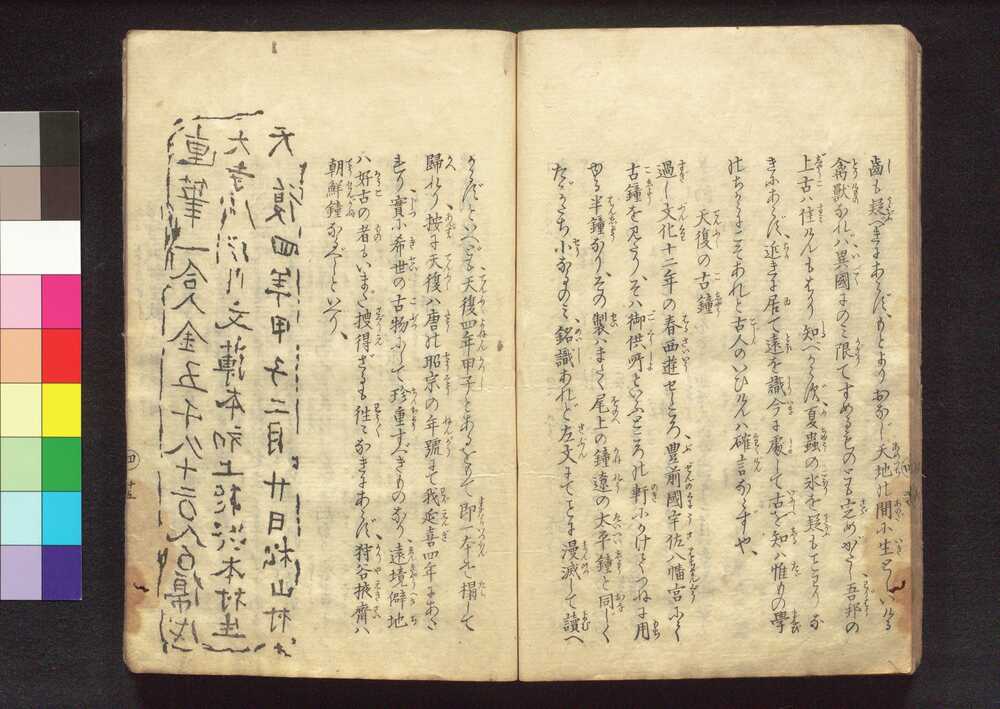 歯も疑べきにあらずもとよりおなじ天地の間に生としいける
禽獣なれバ異國にのミ限てすめるものとも定めがたし吾邦の
上古ハ住けんもはかり知べからず夏蟲の氷を疑もことわりな
きにあらず近きに居て遠を識今に處して古を知ハ惟りの學
のちからにこそあれと古人のいひけんハ確言ならずや
天復の古鐘
過し文化十二年の春西遊せしころ豊前國宇佐八幡宮にて
古鐘を見たりそハ御供所といふところの軒にかけてつねに用
やる半鐘なりその製ハまたく尾上の鐘遠の太平鐘と同じく
たゞかたち小なるのミ銘識あれど左文にてことに漫滅して讀べ
からずといへども天復四年甲子とあるをもて即一本を搨して
歸れり按に天復ハ唐の昭宗の年號にて我延喜四年にあた
れり實に希世の古物にして珍重すべきものなり遠境僻地
ハ好古の者もいまだ捜得ざるも徃々なきにあらず狩谷掖齋ハ
朝鮮鐘なるべしといへり
天復四年甲子二月廿日松山村
大 文 本初上 本村主
連筆一合入金五千八十 入百
四
十五